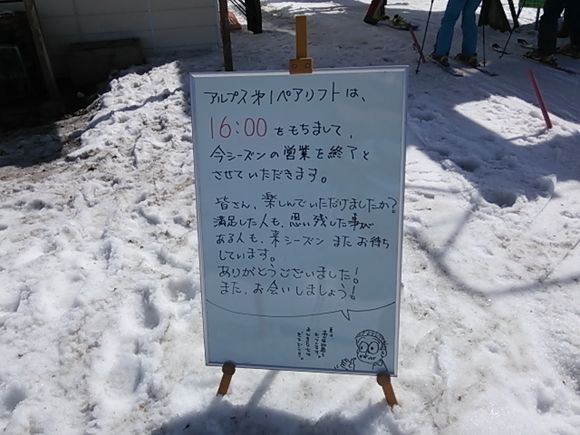 アルプス第1ペアリフトは、
16:00をもちまして、
今シーズンの営業を終了と
させていただきます。
皆さん、楽しんでいただけましたか?
満足した人も、思い残した事が
ある人も、来シーズン またお待ち
しています。
ありがとうございました!
また、お会いしましょう!